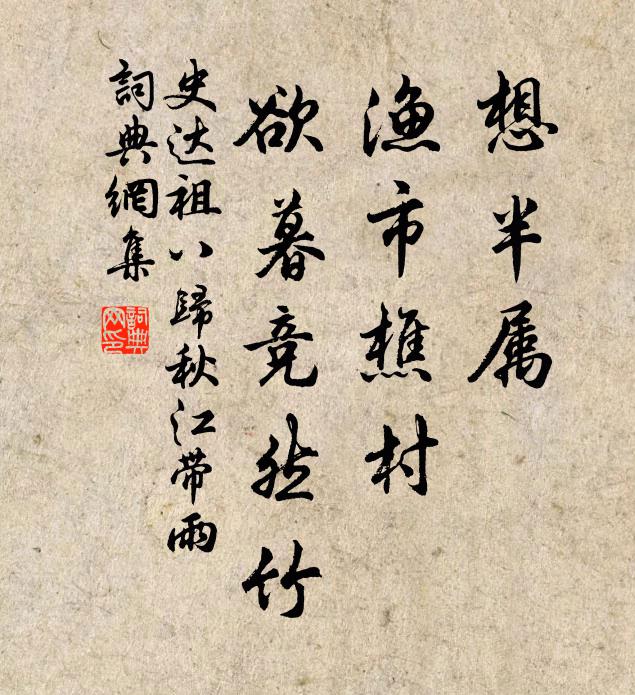 想半属
渔市樵村
欲暮竞然竹
史达祖八歸秋江带雨
詞典網集
詞典
网印